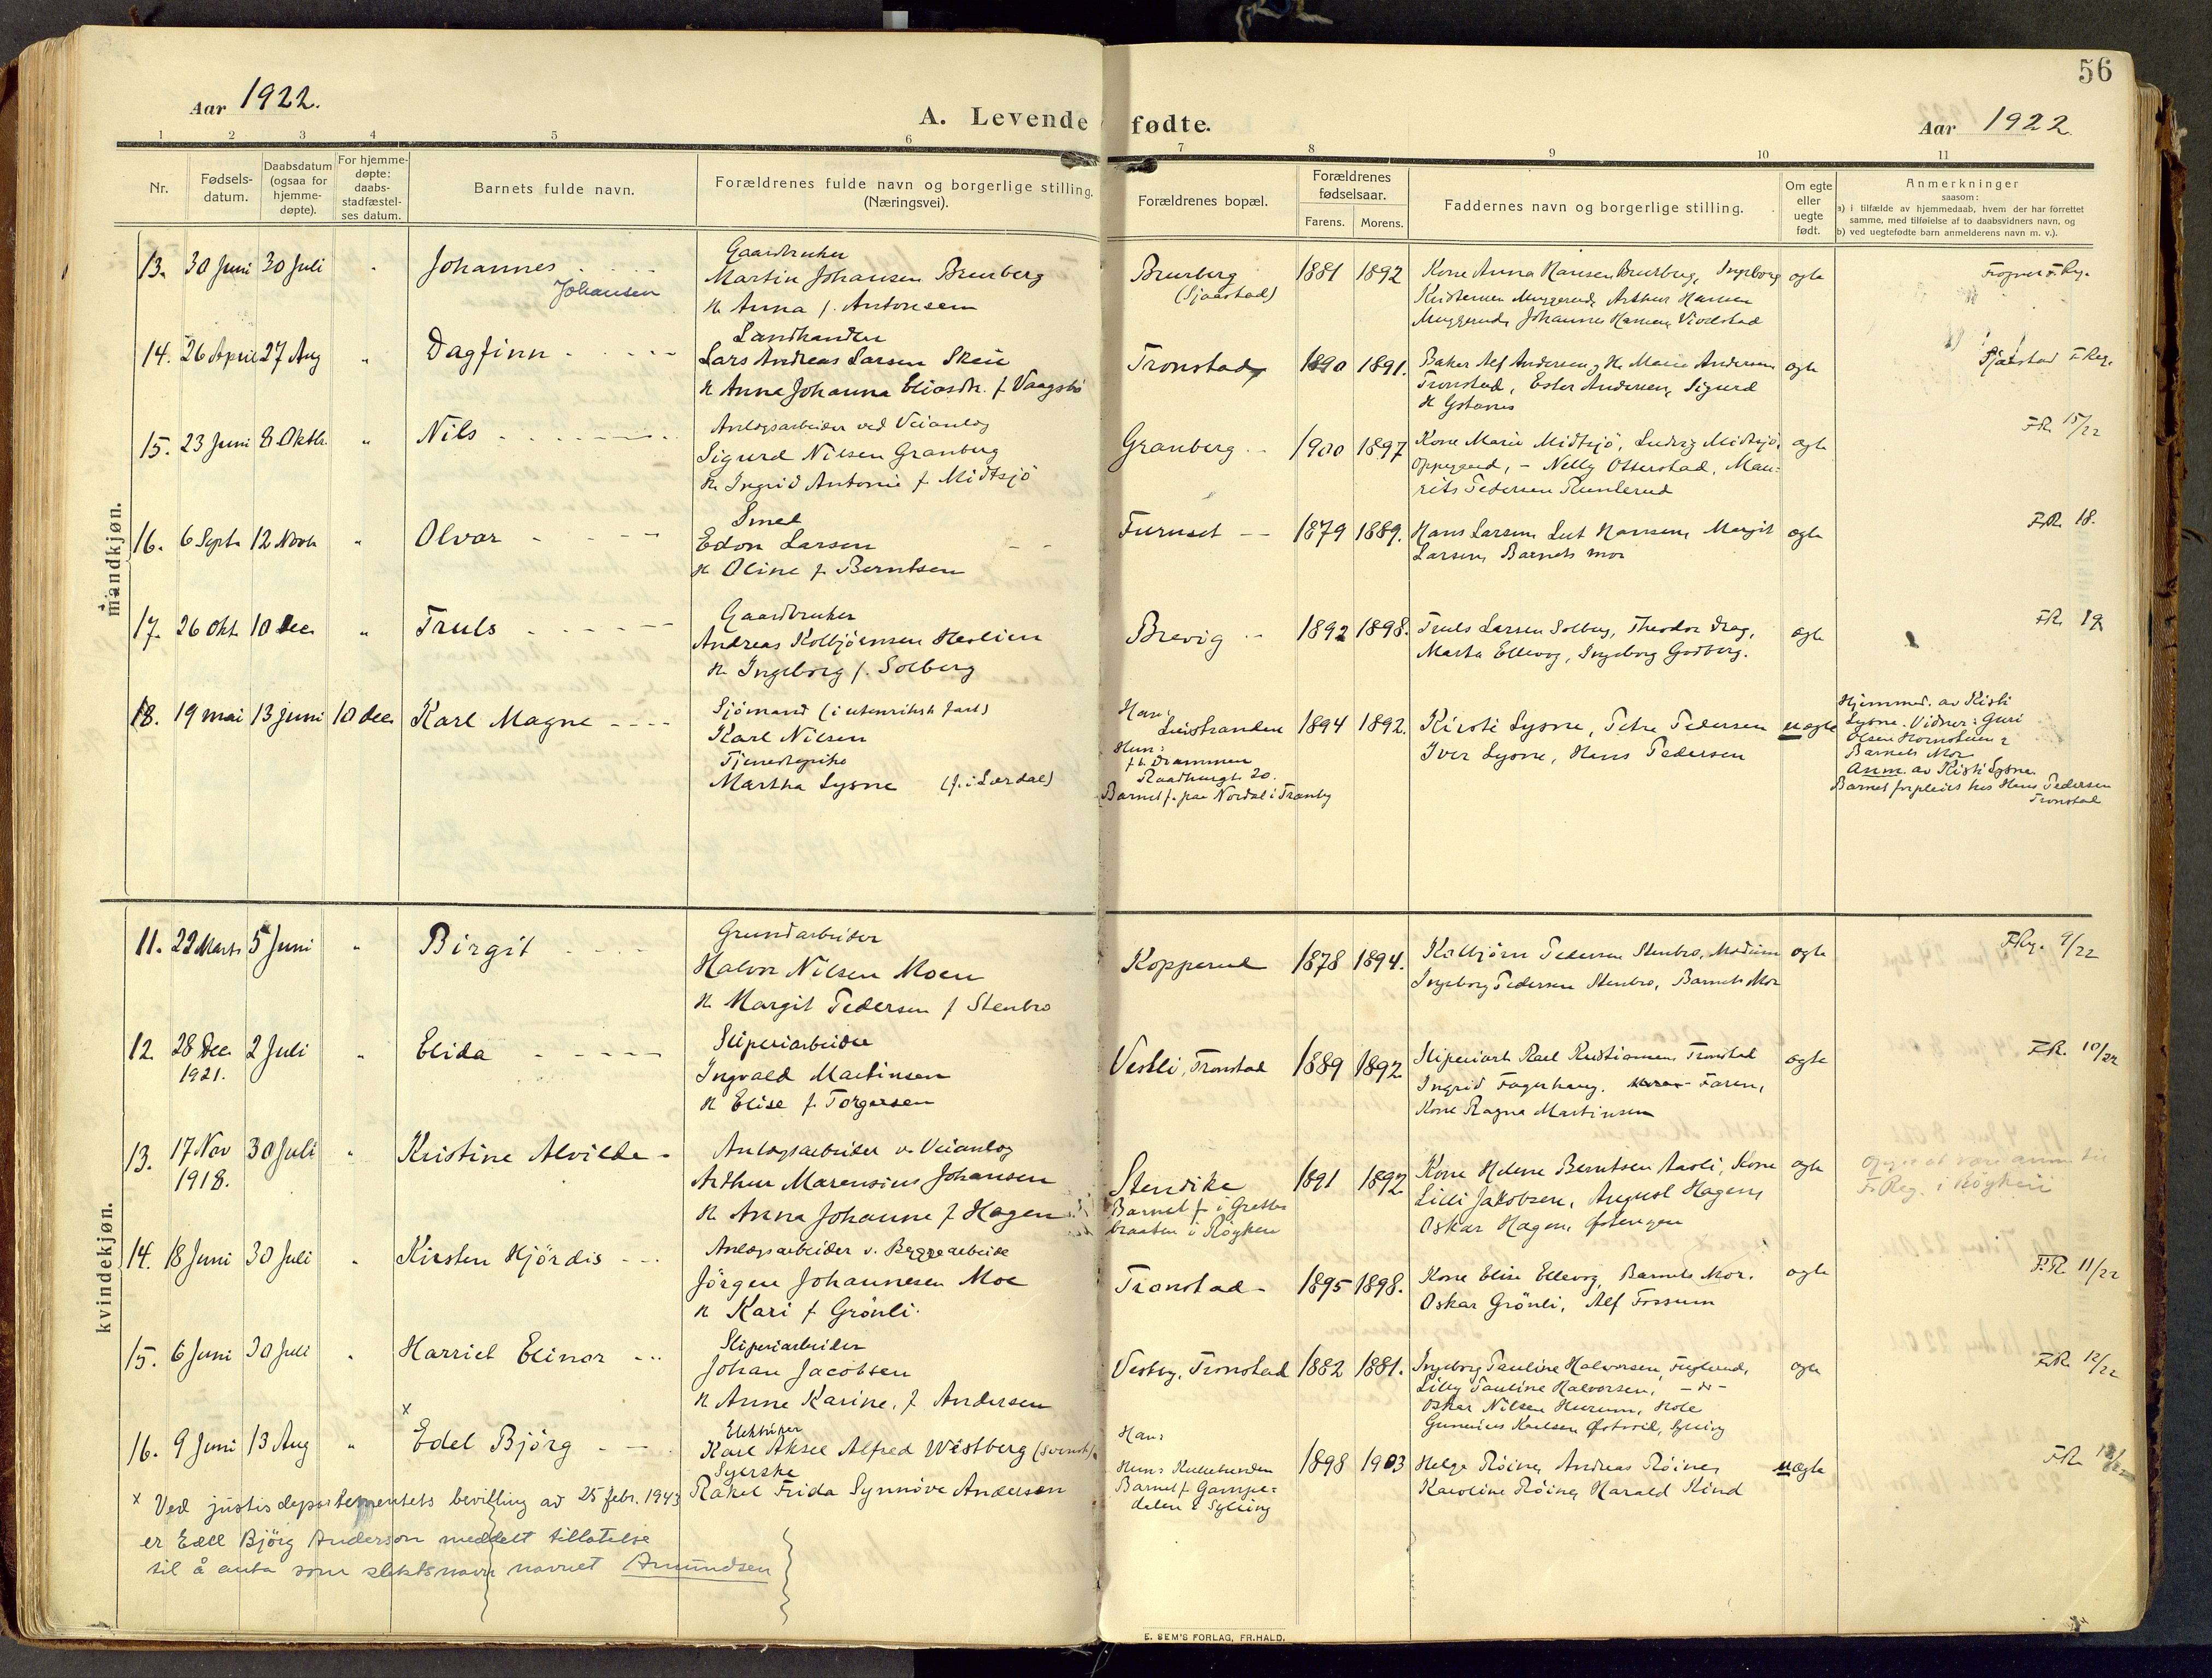 56
Aar 1922.
A. Levende fødte.
Aar 1922.
1 2 3 4 5 6 7 8 9 10 11
Nr.
Fødselsdatum.
Daabsdatum (ogsaa for hjemmedøpte).
For hjemmedøpte: daabsstadfæstelses datum.
Barnets fulde navn.
Forældrenes fulde navn og borgerlige stilling.
(Næringsvei).
Forældrenes bopæl.
Forældrenes fødselsaar.
Farens. Morens.
Faddernes navn og borgerlige stilling.
Om egte eller uegte født.
Anmerkninger
saasom:
a) i tilfælde av hjemmedaab, hvem der har forrettet
samme, med tilføielse af to daabsvidners navn, og
b) ved uegtefødte barn anmelderens navn m. v.).
mandkjøn.
13. 30 Juni 30 Juli " Johannes
Johansen
Gaardbruker
Martin Johansen Brusberg
H. Anna f. Antonsen
Brusberg
(Sjaastad)
1881 1892
Kone Anna Hansen Brusberg, Ingeborg
Kristensen Muggerud, Arthur Hansen
Muggerud, Johannes Hansen, Vivelstad
egte
14. 26 April 27 Aug " Dagfinn
Landhandler
Lars Andreas Larsen Skeie
H. Anna Johanna Eliasdtr. f. Vaagsbö
Tronstad
1890 1891.
Baker Alf Andersen, H. Marie Andersen
Tronstad, Ester Andersen, Sigurd
egte
Sjaastad F. Reg.
15. 23 Juni 8 Oktb. " Nils
Anlægsarbeider ved Veianlæg
Sigurd Nilsen Granberg
H. Ingrid Antonie f. Midtsjö
Granberg
1900 1897
Kone Marie Midtsjö, Ludvig Midtsjö,
Oppegaard, - Nelly Otterstad, Mau-
rits Pedersen
egte
F.R. 15/22
16. 6 Sept. 12 Novb. " Olvar
Smed
Edon Larsen
H. Oline f. Berntsen
Furuset
1879 1889.
Hans Larsen, Hansen, Margit
Larsen, Barnets mor
egte
F.R. 18.
17. 26 Okt. 10 Dec. " Truls
Gaardbruker
Andreas Kolbjörnsen
H. Ingeborg f. Solberg
Brevig
1892 1898.
Truls Larsen Solberg, Theodor Drag,
Marta Ellevog, Ingeborg Godberg.
egte
F.R. 19
18. 19 mai 13 juni 10 dec Karl Magne
Sjömand (i utenriksk fart)
Karl Nilsen
Tjenestepike
Martha Lysne (f. i Lærdal)
Han:
Hun:
f. t. Drammen
Raadhusgt. 20.
Barnet f. paa Nordal i Tranby
1894 1892.
Kirsti Lysne, Petra Pedersen
Iver Lysne, Hans Pedersen
uegte
Hjemmed. av Kisti
Lysne. Vidner: Guri
Olsen
Barnets Mor
Anm. av Kisti Lysne.
Barnet forpleies hos Hans Pedersen
Tronstad
kvindekjøn.
11. 22 Marts 5 Juni " Birgit
Grundarbeider
Halvor Nilsen Moen
H. Margit Pedersen f. Stenbro
Kopperud
1878 1894.
Kolbjörn Pedersen Stenbro, Modum
Ingeborg Pedersen Stenbro, Barnets Mor
egte
F.Reg. 9/22
12. 28 Dec. 1921. 2 Juli " Elida
Sliperiarbeider
Ingvald Martinsen
H. Elise f. Torgersen
Vestli, Tronstad
1889 1892
Sliperiarb. Karl Kristiansen, Tronstad
Ingrid Fagerhaug. Faren,
Kone Ragna Martinsen
egte
F.R. 10/22
13. 17 Nov 1918. 30 Juli " Kristine Alvilde
Anlægsarbeider v. Veianlæg
Arthur Marensius Johansen
H. Anna Johanne f. Hagen
Stendike
Barnet f. i Grette-
braaten i Röyken
1891 1892
Kone Helene Berntsen Aaoli, Kone
Lilli Jakobsen, August Hagen,
Oskar Hagen,
egte
F.Reg. i Röyken
14. 18 Juni 30 Juli " Kirsten Hjördis
Anlægsarbeider v. Byggearbeide
Jörgen Johannesen Moe
H. Kari f. Grönli.
Tronstad
1895 1898.
Kone Elise Ellevog, Barnets Mor.
Oskar Grönli, Alf Fossum
egte
F.R. 11/22
15. 6 Juni 30 Juli " Harriet Elinor
Sliperiarbeider
Johan Jacobsen
H. Anne Karine, f. Andersen
Vestby, Tronstad
1882 1881.
Ingeborg Pauline Halvorsen, Fuglerud,
Lilly Pauline Halvorsen, - do -
Oskar Nilsen Hurum, Hole
Gunerius Karlsen Østvold, Sylling
egte
F.R. 12/22
x
16. 9 Juni 13 Aug " Edel Björg
Elektriker
Karl Aksel Alfred Westberg (svensk).
Syerske
Rakel Frida Synnöve Andersen
Han:
Hun:
Barnet f. Gampe-
dalen i Sylling
1898 1903
Helga Röine, Andreas Röine,
Karoline Röine, Harald Kind
uegte
x Ved justisdepartementets bevilling av 25 febr. 1943
er Edel Björg Anderson meddelt tillatelse
til å anta som slektsnavn navnet Amundsen
E. SEM'S FORLAG, FR.HALD.